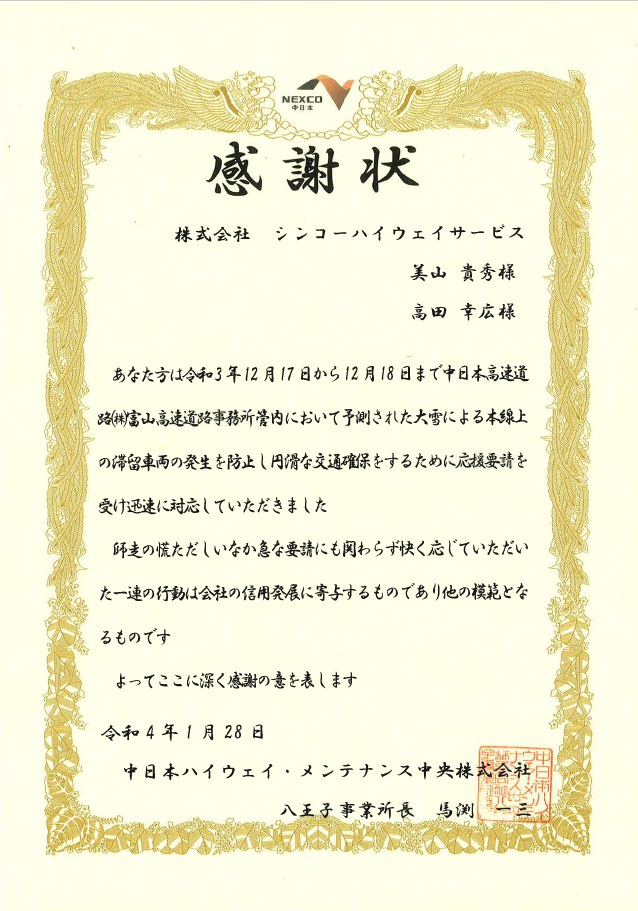 NEXCO
中日本
感謝状
株式会社 シンコーハイウェイサービス
美山 貴秀様
高田 幸広様
あなた方は令和3年12月17日から12月18日まで中日本高速道
路㈱富山高速道路事務所管内において予測された大雪による本線上
の滞留車両の発生を防止し円滑な交通確保をするために応援要請を
受け迅速に対応していただきました
師走の慌ただしいなか急な要請にも関わらず快く応じていただい
た一連の行動は会社の信用発展に寄与するものであり他の模範とな
るものです
よってここに深く感謝の意を表します
令和4年1月28日
中日本ハイウェイ・メンテナンス中央株式会社
八王子事業所長 馬渕 一三